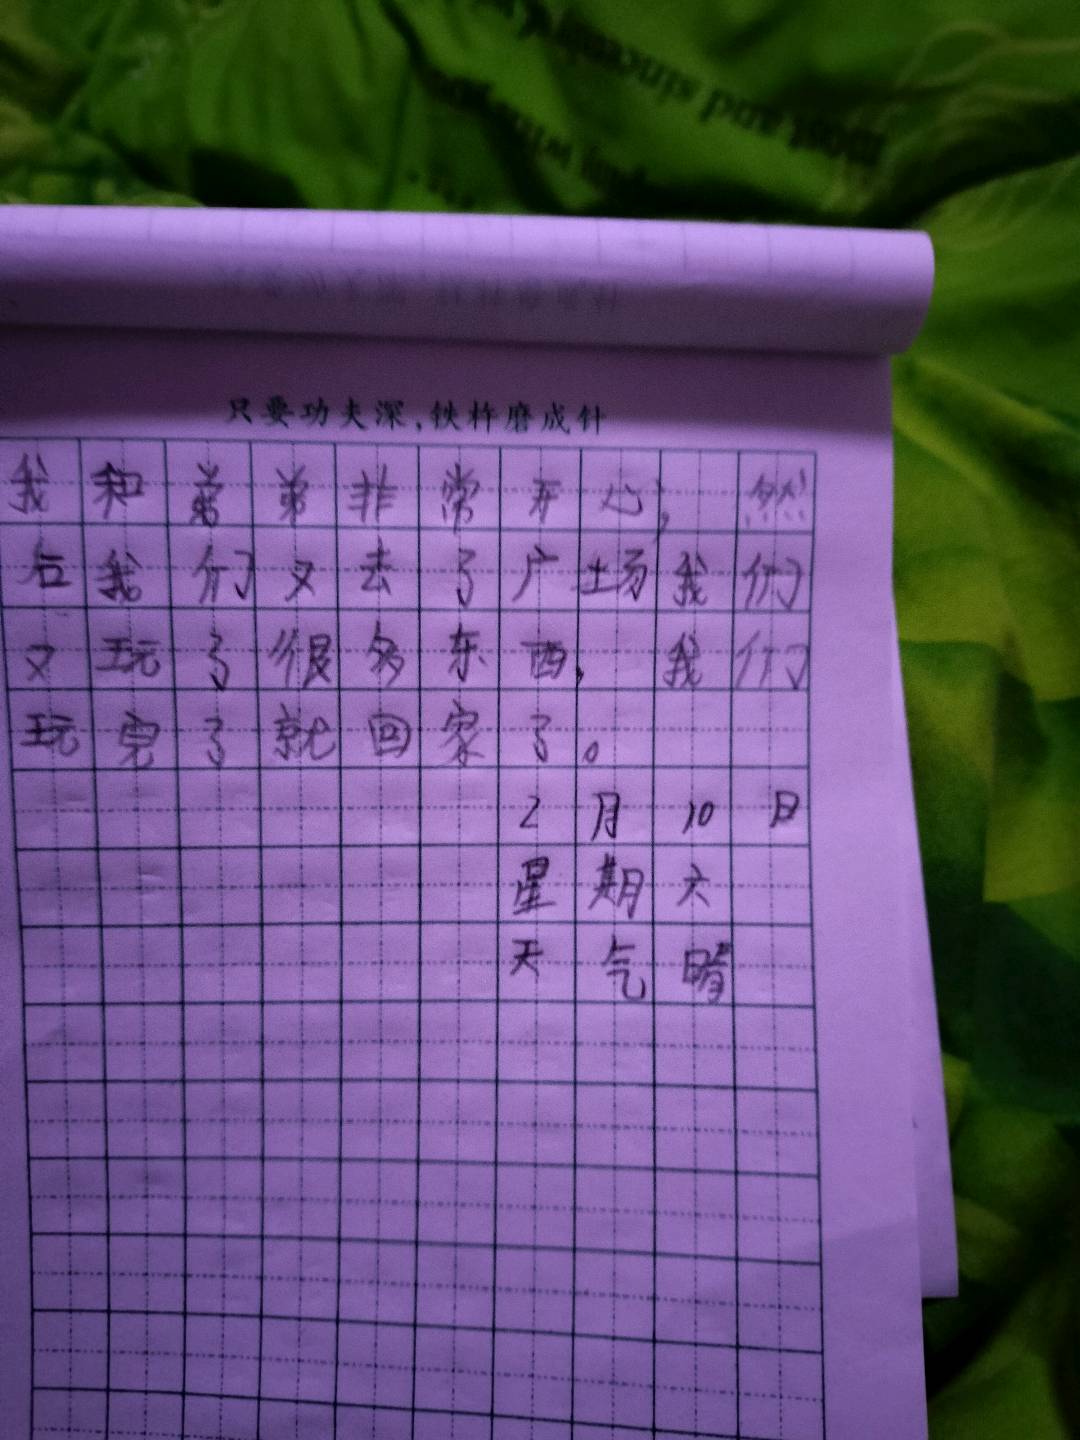 只要功夫深,铁杵磨成针
我和弟弟非常开心,然
后我们又去了广场我们
又玩了很多东西,我们
玩完了就回家了。
2月10日
星期六
天气晴